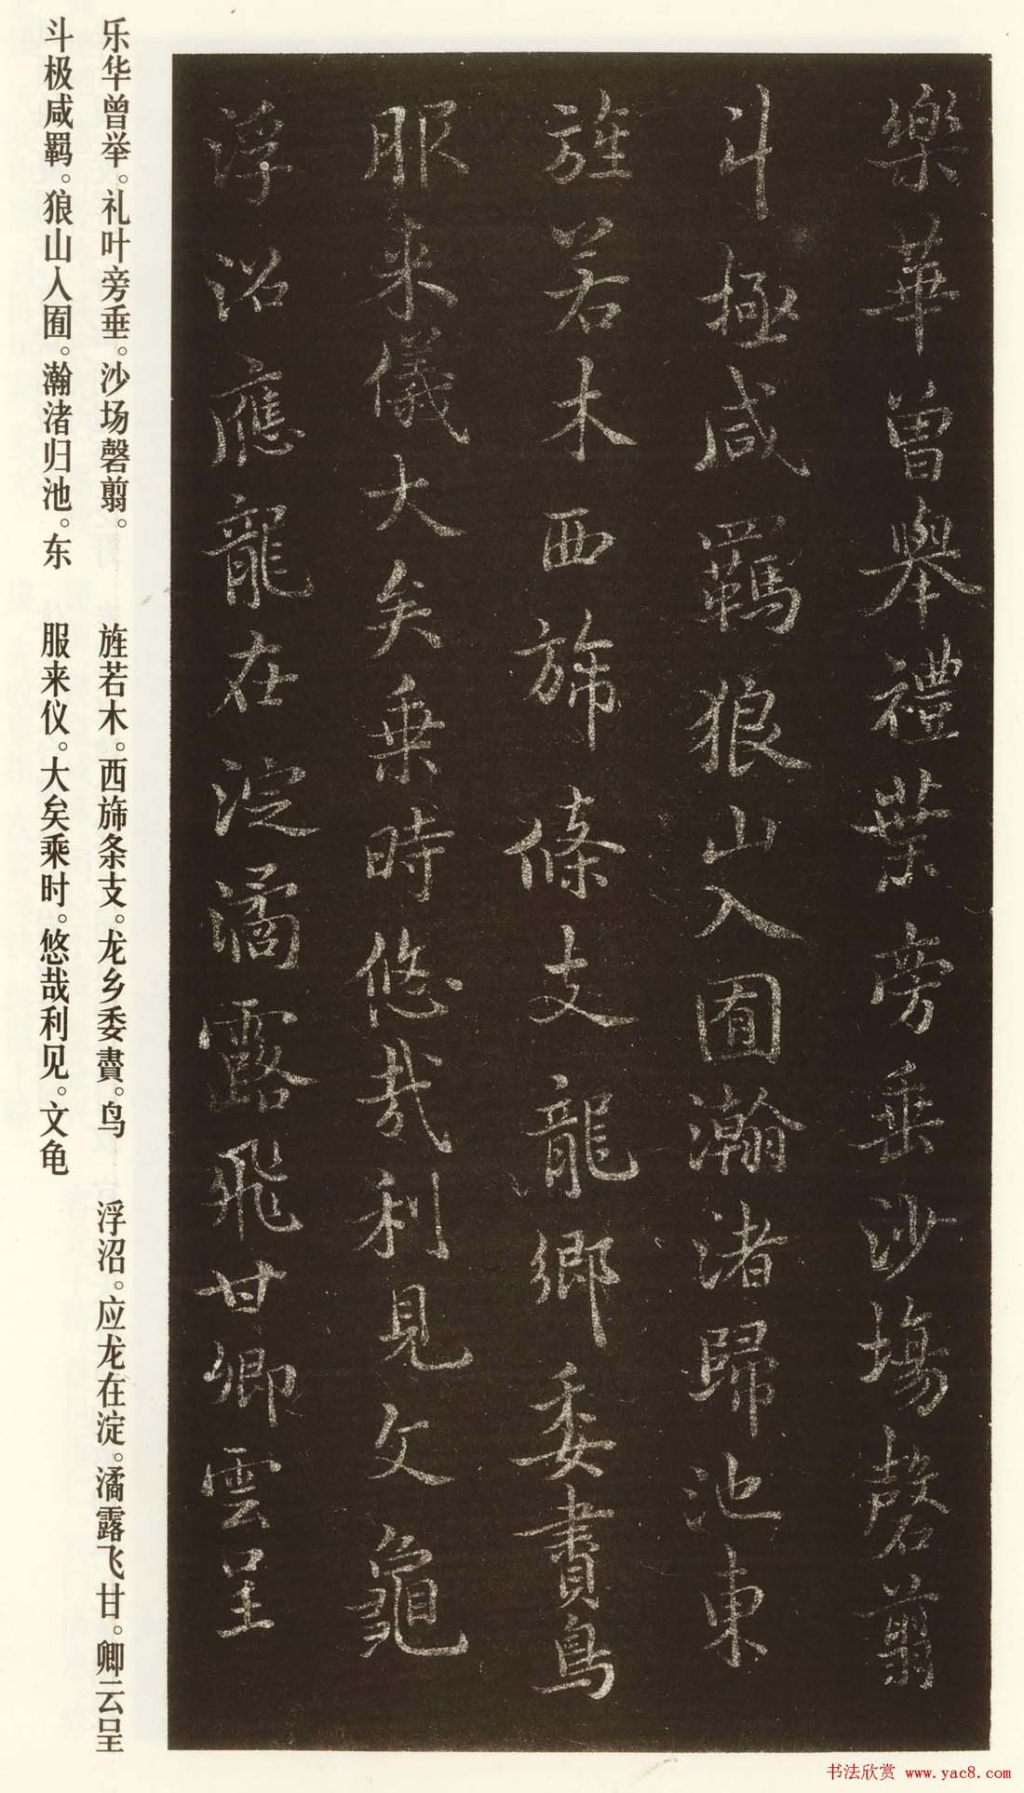 樂華曾舉禮葉旁垂沙場磬翦
斗極咸羈狼山入囿瀚渚歸池東
旌若木西旆條支龍鄉委賮鳥
服来儀大矣乗時悠哉利見文龜
浮沼應龍在淀潏露飛甘卿雲呈
乐华曾举。礼叶旁垂。沙场磬翦。
斗极咸羁。狼山入囿。瀚渚归池。东
旌若木。西旆条支。龙乡委賮。鸟
服来仪。大矣乘时。悠哉利见。文龟
浮沼。应龙在淀。潏露飞甘。卿云呈
书法欣赏 www.yac8.com